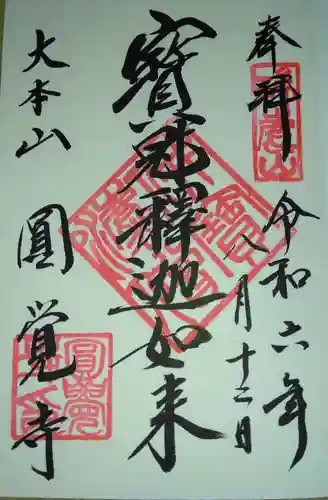 奉拝
令和六年
八月十二日
寶冠釋迦如来
大本山
圓覺寺